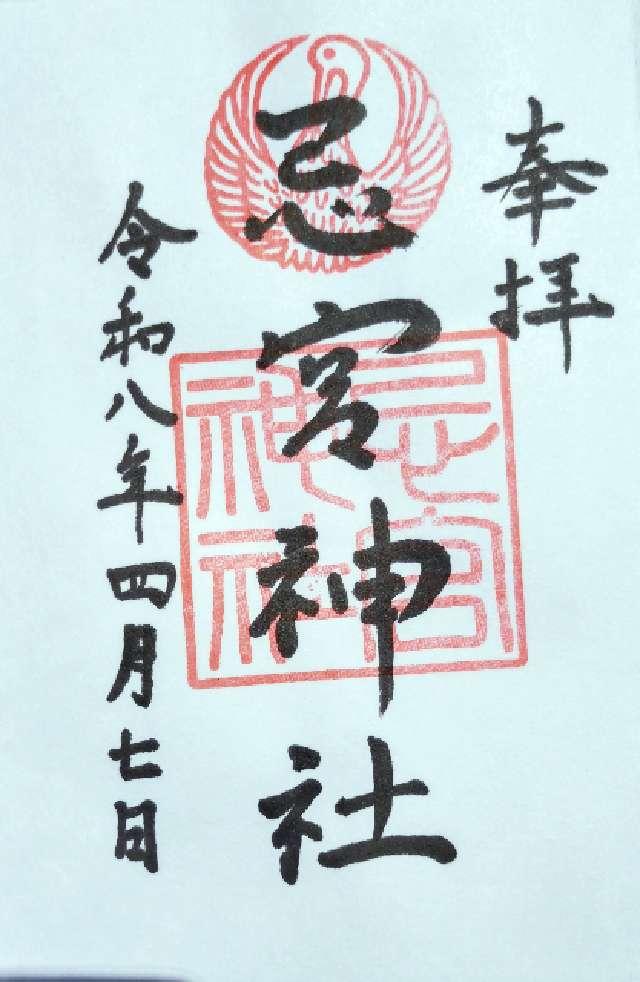 奉拝
忌宮神社
令和八年四月七日
忌宮
神社